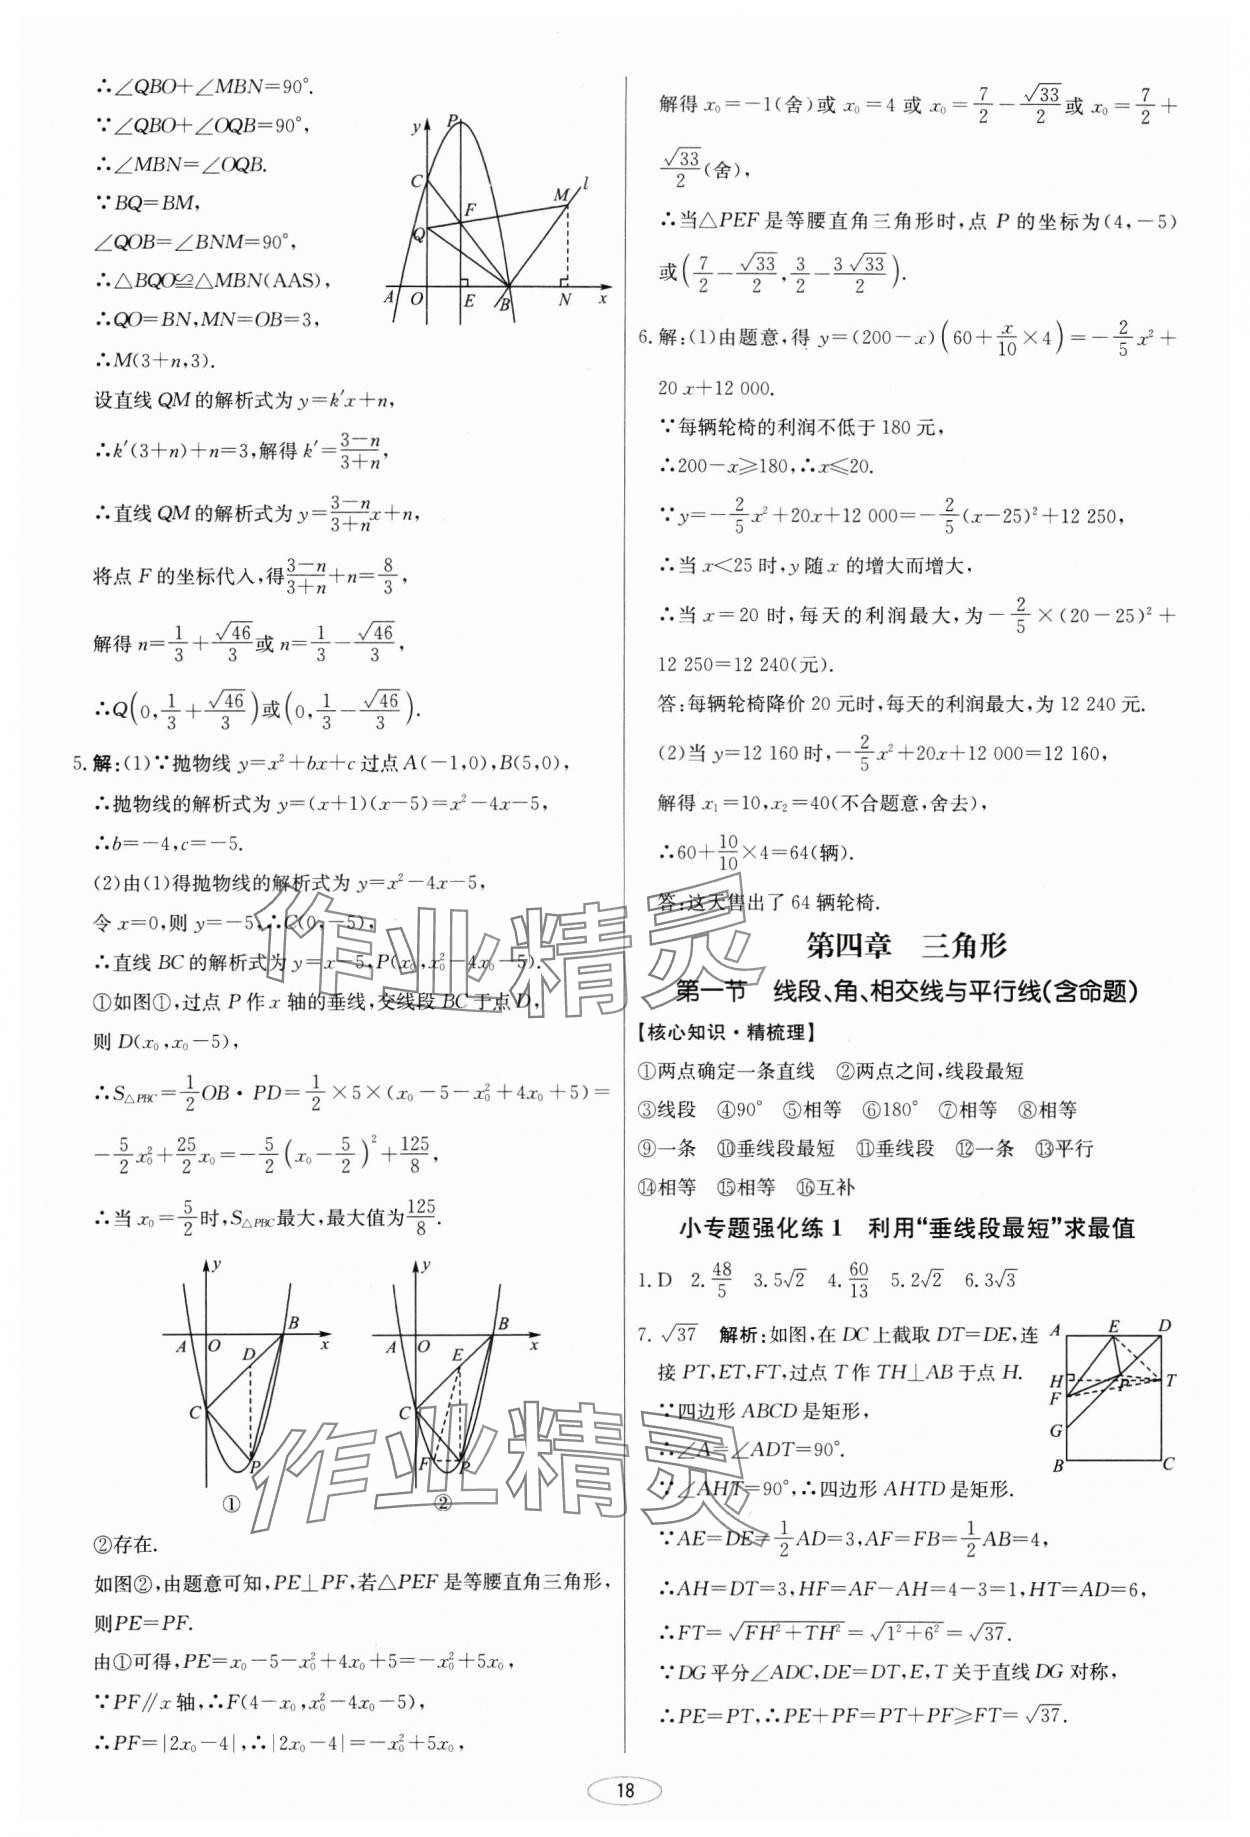 ∴∠QBO+∠MBN=90°.
∵∠QBO+∠OQB=90°,
∴∠MBN=∠OQB.
∵BQ=BM,
∠QOB=∠BNM=90°,
∴△BQO≌△MBN(AAS),
∴QO=BN,MN=OB=3,
∴M(3+n,3).
y P C F M l Q A O E B N x
设直线 QM 的解析式为 y=k′x+n,
∴k′(3+n)+n=3,解得 k′=\frac{3-n}{3+n},
∴直线 QM 的解析式为 y=\frac{3-n}{3+n}x+n,
将点 F 的坐标代入,得\frac{3-n}{3+n}+n=\frac{8}{3},
解得 n=\frac{1}{3}+\frac{√46}{3}或 n=\frac{1}{3}-\frac{√46}{3},
∴Q(0,\frac{1}{3}+\frac{√46}{3})或(0,\frac{1}{3}-\frac{√46}{3}).
5.解:(1)∵抛物线 y=x²+bx+c 过点 A(-1,0),B(5,0),
∴抛物线的解析式为 y=(x+1)(x-5)=x²-4x-5,
∴b=-4,c=-5.
(2)由(1)得抛物线的解析式为 y=x²-4x-5,
令 x=0,则 y=-5,∴C(0,-5),
∴直线 BC 的解析式为 y=x-5,P(x₀,x₀²-4x₀-5).
①如图①,过点 P 作 x 轴的垂线,交线段 BC 于点 D,
则 D(x₀,x₀-5),
∴S△PBC=\frac{1}{2}OB·PD=\frac{1}{2}×5×(x₀-5-x₀²+4x₀+5)=
-\frac{5}{2}x₀²+\frac{25}{2}x₀=-\frac{5}{2}(x₀-\frac{5}{2})²+\frac{125}{8},
∴当 x₀=\frac{5}{2}时,S△PBC最大,最大值为\frac{125}{8}.
y A O B x D C P ①
y A O B x E C F P ②
②存在.
如图②,由题意可知,PE⊥PF,若△PEF 是等腰直角三角形,
则PE=PF.
由①可得,PE=x₀-5-x₀²+4x₀+5=-x₀²+5x₀,
∵PF∥x 轴,∴F(4-x₀,x₀²-4x₀-5),
∴PF=|2x₀-4|,∴|2x₀-4|=-x₀²+5x₀,
解得 x₀=-1(舍)或 x₀=4 或 x₀=\frac{7}{2}-\frac{√33}{2}或 x₀=\frac{7}{2}+
\frac{√33}{2}(舍),
∴当△PEF 是等腰直角三角形时,点 P 的坐标为(4,-5)
或(\frac{7}{2}-\frac{√33}{2},\frac{3}{2}-\frac{3√33}{2}).
6.解:(1)由题意,得 y=(200-x)(60+\frac{x}{10}×4)=-\frac{2}{5}x²+
20x+12 000.
∵每辆轮椅的利润不低于 180 元,
∴200-x≥180,∴x≤20.
∵y=-\frac{2}{5}x²+20x+12 000=-\frac{2}{5}(x-25)²+12 250,
∴当 x<25 时,y 随 x 的增大而增大,
∴当 x=20 时,每天的利润最大,为-\frac{2}{5}×(20-25)²+
12 250=12 240(元).
答:每辆轮椅降价 20 元时,每天的利润最大,为 12 240 元.
(2)当 y=12 160 时,-\frac{2}{5}x²+20x+12 000=12 160,
解得 x₁=10,x₂=40(不合题意,舍去),
∴60+\frac{10}{10}×4=64(辆).
答:这天售出了 64 辆轮椅.
第四章 三角形
第一节 线段、角、相交线与平行线(含命题)
【核心知识·精梳理】
①两点确定一条直线 ②两点之间,线段最短
③线段 ④90° ⑤相等 ⑥180° ⑦相等 ⑧相等
⑨一条 ⑩垂线段最短 ⑪垂线段 ⑫一条 ⑬平行
⑭相等 ⑮相等 ⑯互补
小专题强化练1 利用“垂线段最短”求最值
1.D 2.\frac{48}{5} 3.5√2 4.\frac{60}{13} 5.2√2 6.3√3
7.√37 解析:如图,在 DC 上截取 DT=DE,连
接 PT,ET,FT,过点 T 作 TH⊥AB 于点 H.
∵四边形 ABCD 是矩形,
∴∠A=∠ADT=90°.
∵∠AHT=90°,∴四边形 AHTD 是矩形.
A E D H P T F G B C
∵AE=DE=\frac{1}{2}AD=3,AF=FB=\frac{1}{2}AB=4,
∴AH=DT=3,HF=AF-AH=4-3=1,HT=AD=6,
∴FT=√(FH²+TH²)=√(1²+6²)=√37.
∵DG 平分∠ADC,DE=DT,E,T 关于直线 DG 对称,
∴PE=PT,∴PE+PF=PT+PF≥FT=√37.
18
作业精灵
作业精灵